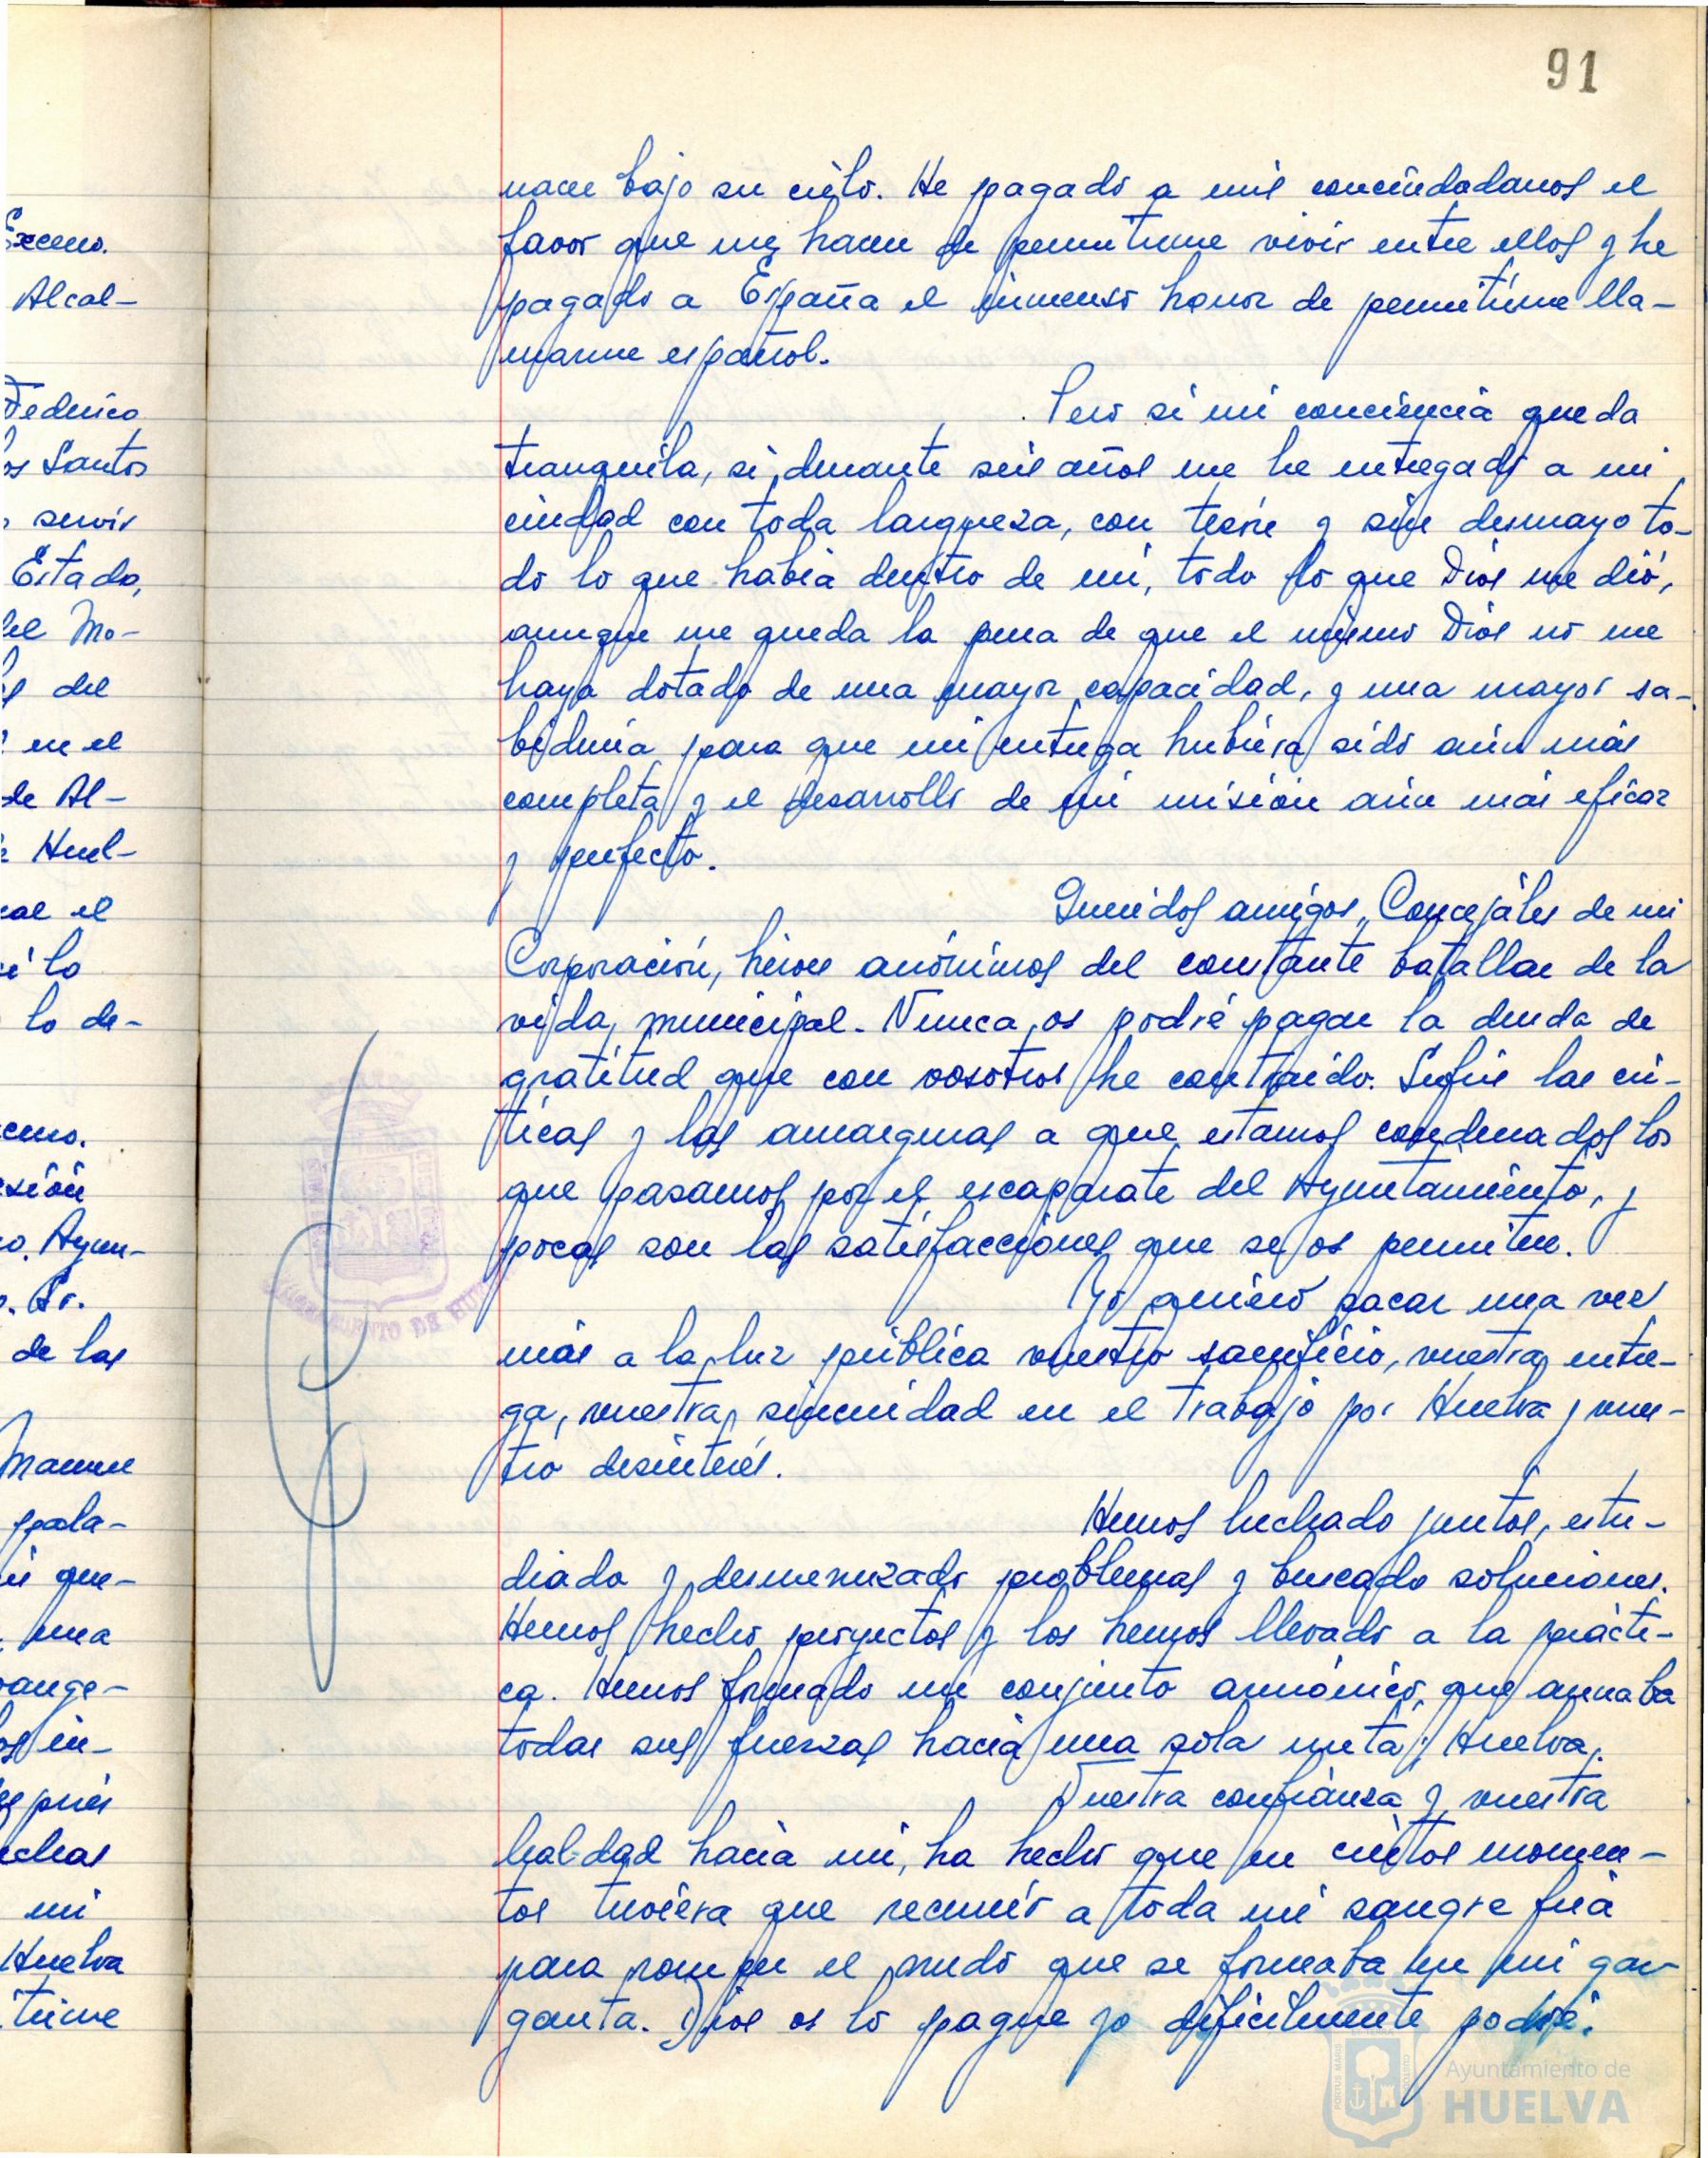 91
nace bajo su cielo. He pagado a mis conciudadanos el
favor que me hacen de permitirme vivir entre ellos y he
pagado a España el inmenso honor de permitirme lla-
marme español.
Pero si mi conciencia queda
tranquila, si durante seis años me he entregado a mi
ciudad con toda largueza, con tesón y sin desmayo to-
do lo que había dentro de mí, todo lo que Dios me dió,
aunque me queda la pena de que el mismo Dios no me
haya dotado de una mayor capacidad, y una mayor sa-
biduria para que mi entrega hubiera sido aún más
completa y el desarrollo de mi misión aún más eficaz
y perfecto.
Queridos amigos, Concejales de mi
Corporación, héroes anónimos del constante batallar de la
vida municipal. Nunca os podré pagar la deuda de
gratitud que con vosotros he contraido. Sufrís las crí-
ticas y las amarguras a que estamos condenados los
que pasamos por el escaparate del Ayuntamiento, y
pocas son las satisfacciones que se os permiten.
Yo quiero sacar una vez
más a la luz pública vuestro sacrificio, vuestra entre-
ga, vuestra sinceridad en el trabajo por Huelva y vues-
tro desinterés.
Hemos luchado juntos, estu-
diado y desmenuzado problemas y buscado soluciones.
Hemos hecho proyectos y los hemos llevado a la prácti-
ca. Hemos formado un conjunto armónico, que aunaba
todas sus fuerzas hacia una sola meta; Huelva.
Vuestra confianza y vuestra
lealdad hacia mi, ha hecho que en ciertos momen-
tos tuviera que recurrir a toda mi sangre fria
para romper el nudo que se formaba en mi gar-
ganta. Dios os lo pague yo dificilmente podré.
Excmo.
Alcal-
Federico
los Santos
servir
Estado,
del Mo-
del
en el
de Al-
Huel-
el
lo
lo de-
Ayun-
Sr.
de las
pala-
que-
una
mi
Huelva
AYUNTAMIENTO DE HUELVA
Ayuntamiento de
HUELVA